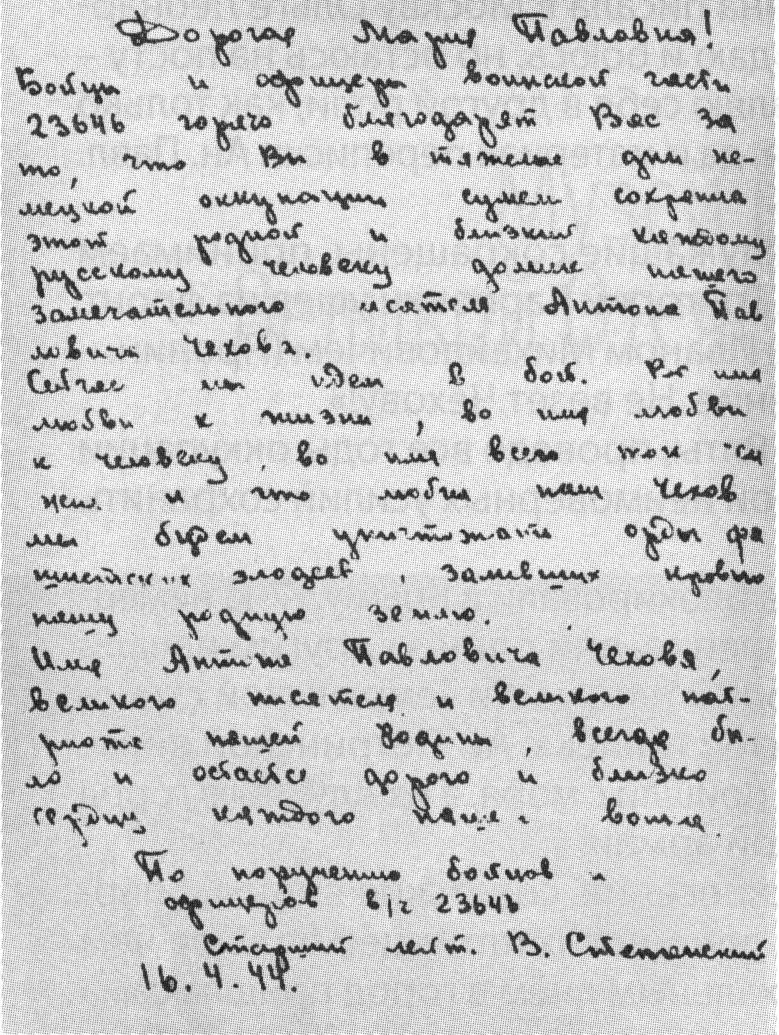 Дорогая Мария Павловна!
Бойцы и офицеры воинской части
23646 горячо благодарят Вас за
то, что Вы в тяжелые дни не-
мецкой оккупации сумели сохранить
этот родной и близкий каждому
русскому человеку домик нашего
замечательного писателя Антона Пав
ловича Чехова.
Сейчас мы идем в бой. Во имя
любви к жизни, во имя любви
к человеку, во имя всего
и что любил наш Чехов
мы будем уничтожать орды фа
шистских злодеев, заливших кровью
нашу родную землю.
Имя Антона Павловича Чехова,
великого писателя и великого пат-
риота нашей Родины, всегда бы-
ло и остается дорого и близко
сердцу каждого нашего воина.
По поручению бойцов и
офицеров в/ч 23646
Старший лейт. В.
16.4.44.